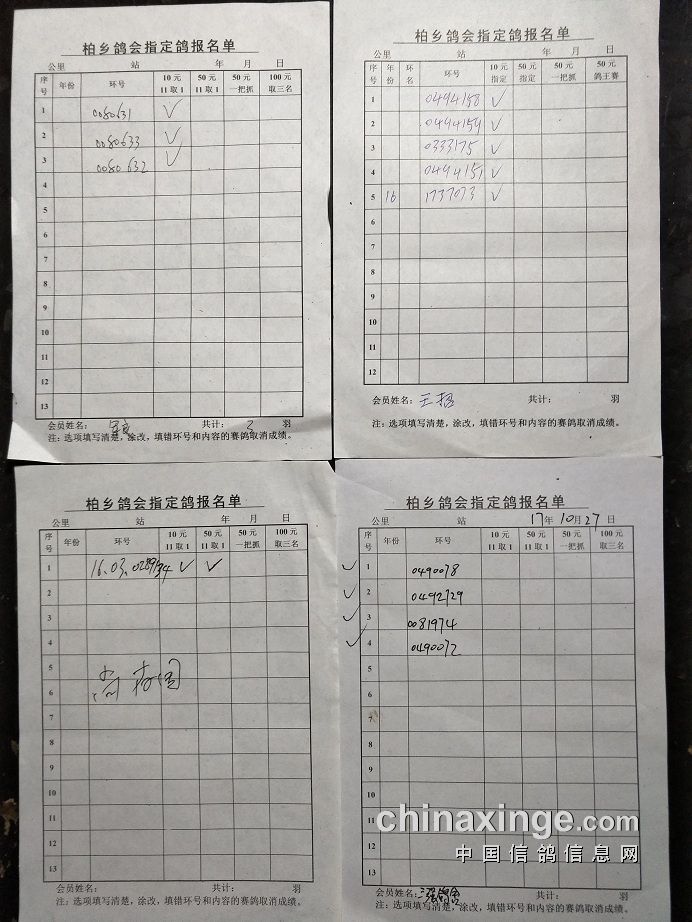 柏乡鸽会指定鸽报名单
公里 站 年 月 日
序号 年份 环号 10元 11取1 50元 11取1 50元 一把抓 100元 取三名
1 0080631 ✓
2 0080633 ✓
3 0080632 ✓
4
5
6
7
8
9
10
11
12
13
会员姓名: 共计: 羽
注:选项填写清楚,涂改,填错环号和内容的赛鸽取消成绩。
柏乡鸽会指定鸽报名单
公里 站 年 月 日
序号 年份 环名 环号 10元 指定 50元 指定 50元 一把抓 50元 鸽王赛
1 0494158 ✓
2 0494159 ✓
3 0333175 ✓
4 0494151 ✓
5 16 1737073 ✓
6
7
8
9
10
11
12
会员姓名: 王 共计: 羽
注:选项填写清楚,涂改,填错环号和内容的赛鸽取消成绩。
柏乡鸽会指定鸽报名单
公里 站 年 月 日
序号 年份 环号 10元 11取1 50元 11取1 50元 一把抓 100元 取三名
1 16.03. ✓ ✓
2
3
4
5
6
7
8
9
10
11
12
13
会员姓名: 共计: 羽
注:选项填写清楚,涂改,填错环号和内容的赛鸽取消成绩。
柏乡鸽会指定鸽报名单
公里 站 17年10月27日
序号 年份 环号 10元 11取1 50元 11取1 50元 一把抓 100元 取三名
✓ 1 0490078
✓ 2 0492729
✓ 3 0081974
✓ 4 0490072
5
6
7
8
9
10
11
12
13
会员姓名: 共计: 羽
注:选项填写清楚,涂改,填错环号和内容的赛鸽取消成绩。
chinaxinge.com
中国信鸽信息网